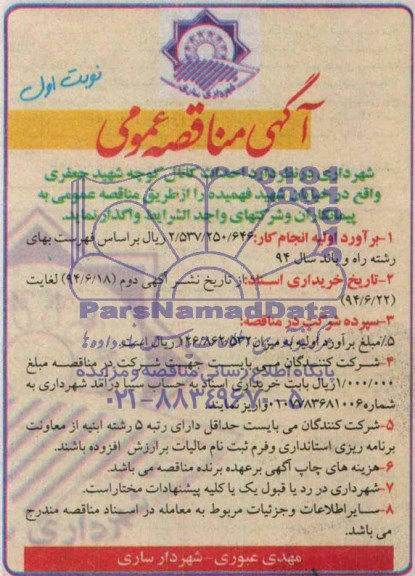 شهرداری ساری
نوبت اول
آگهی مناقصه عمومی
شهرداری در نظر دارد احداث کانال کوچه شهید جعفری
واقع در خیابان شهید فهمیده را از طریق مناقصه عمومی به
پیمانکاران و شرکتهای واجد الشرایط واگذار نماید.
۱-برآورد اولیه انجام کار: ۲/۵۳۷/۲۵۰/۶۴۶ ریال براساس فهرست بهای
رشته راه و باند سال ۹۴
۲-تاریخ خریداری اسناد: از تاریخ نشر آگهی دوم (۹۴/۶/۱۸) لغایت
(۹۴/۶/۲۲)
ParsNamadData
۳-سپرده شرکت در مناقصه:
۵٪ مبلغ برآورد اولیه به میزان ۱۲۶/۸۶۲/۵۳۲ ریال است.
۴-شرکت کنندگان می بایست جهت شرکت در مناقصه مبلغ
پایگاه اطلاع رسانی مناقصه و مزایده
۱/۰۰۰/۰۰۰ ریال بابت خریداری اسناد به حساب سیبا درآمد شهرداری به
شماره ۰۱۰۶۰۷۷۸۳۶۸۱۰۰۶ واریز نمایند.
۰۲۱-۸۸۳۴۹۶۷۰-۵
۵-شرکت کنندگان می بایست حداقل دارای رتبه ۵ رشته ابنیه از معاونت
برنامه ریزی استانداری و فرم ثبت نام مالیات بر ارزش افزوده باشند.
۶-هزینه های چاپ آگهی برعهده برنده مناقصه می باشد.
۷-شهرداری در رد یا قبول یک یا کلیه پیشنهادات مختار است.
۸-سایر اطلاعات و جزئیات مربوط به معامله در اسناد مناقصه مندرج
می باشد.
مهدی عبوری-شهردار ساری